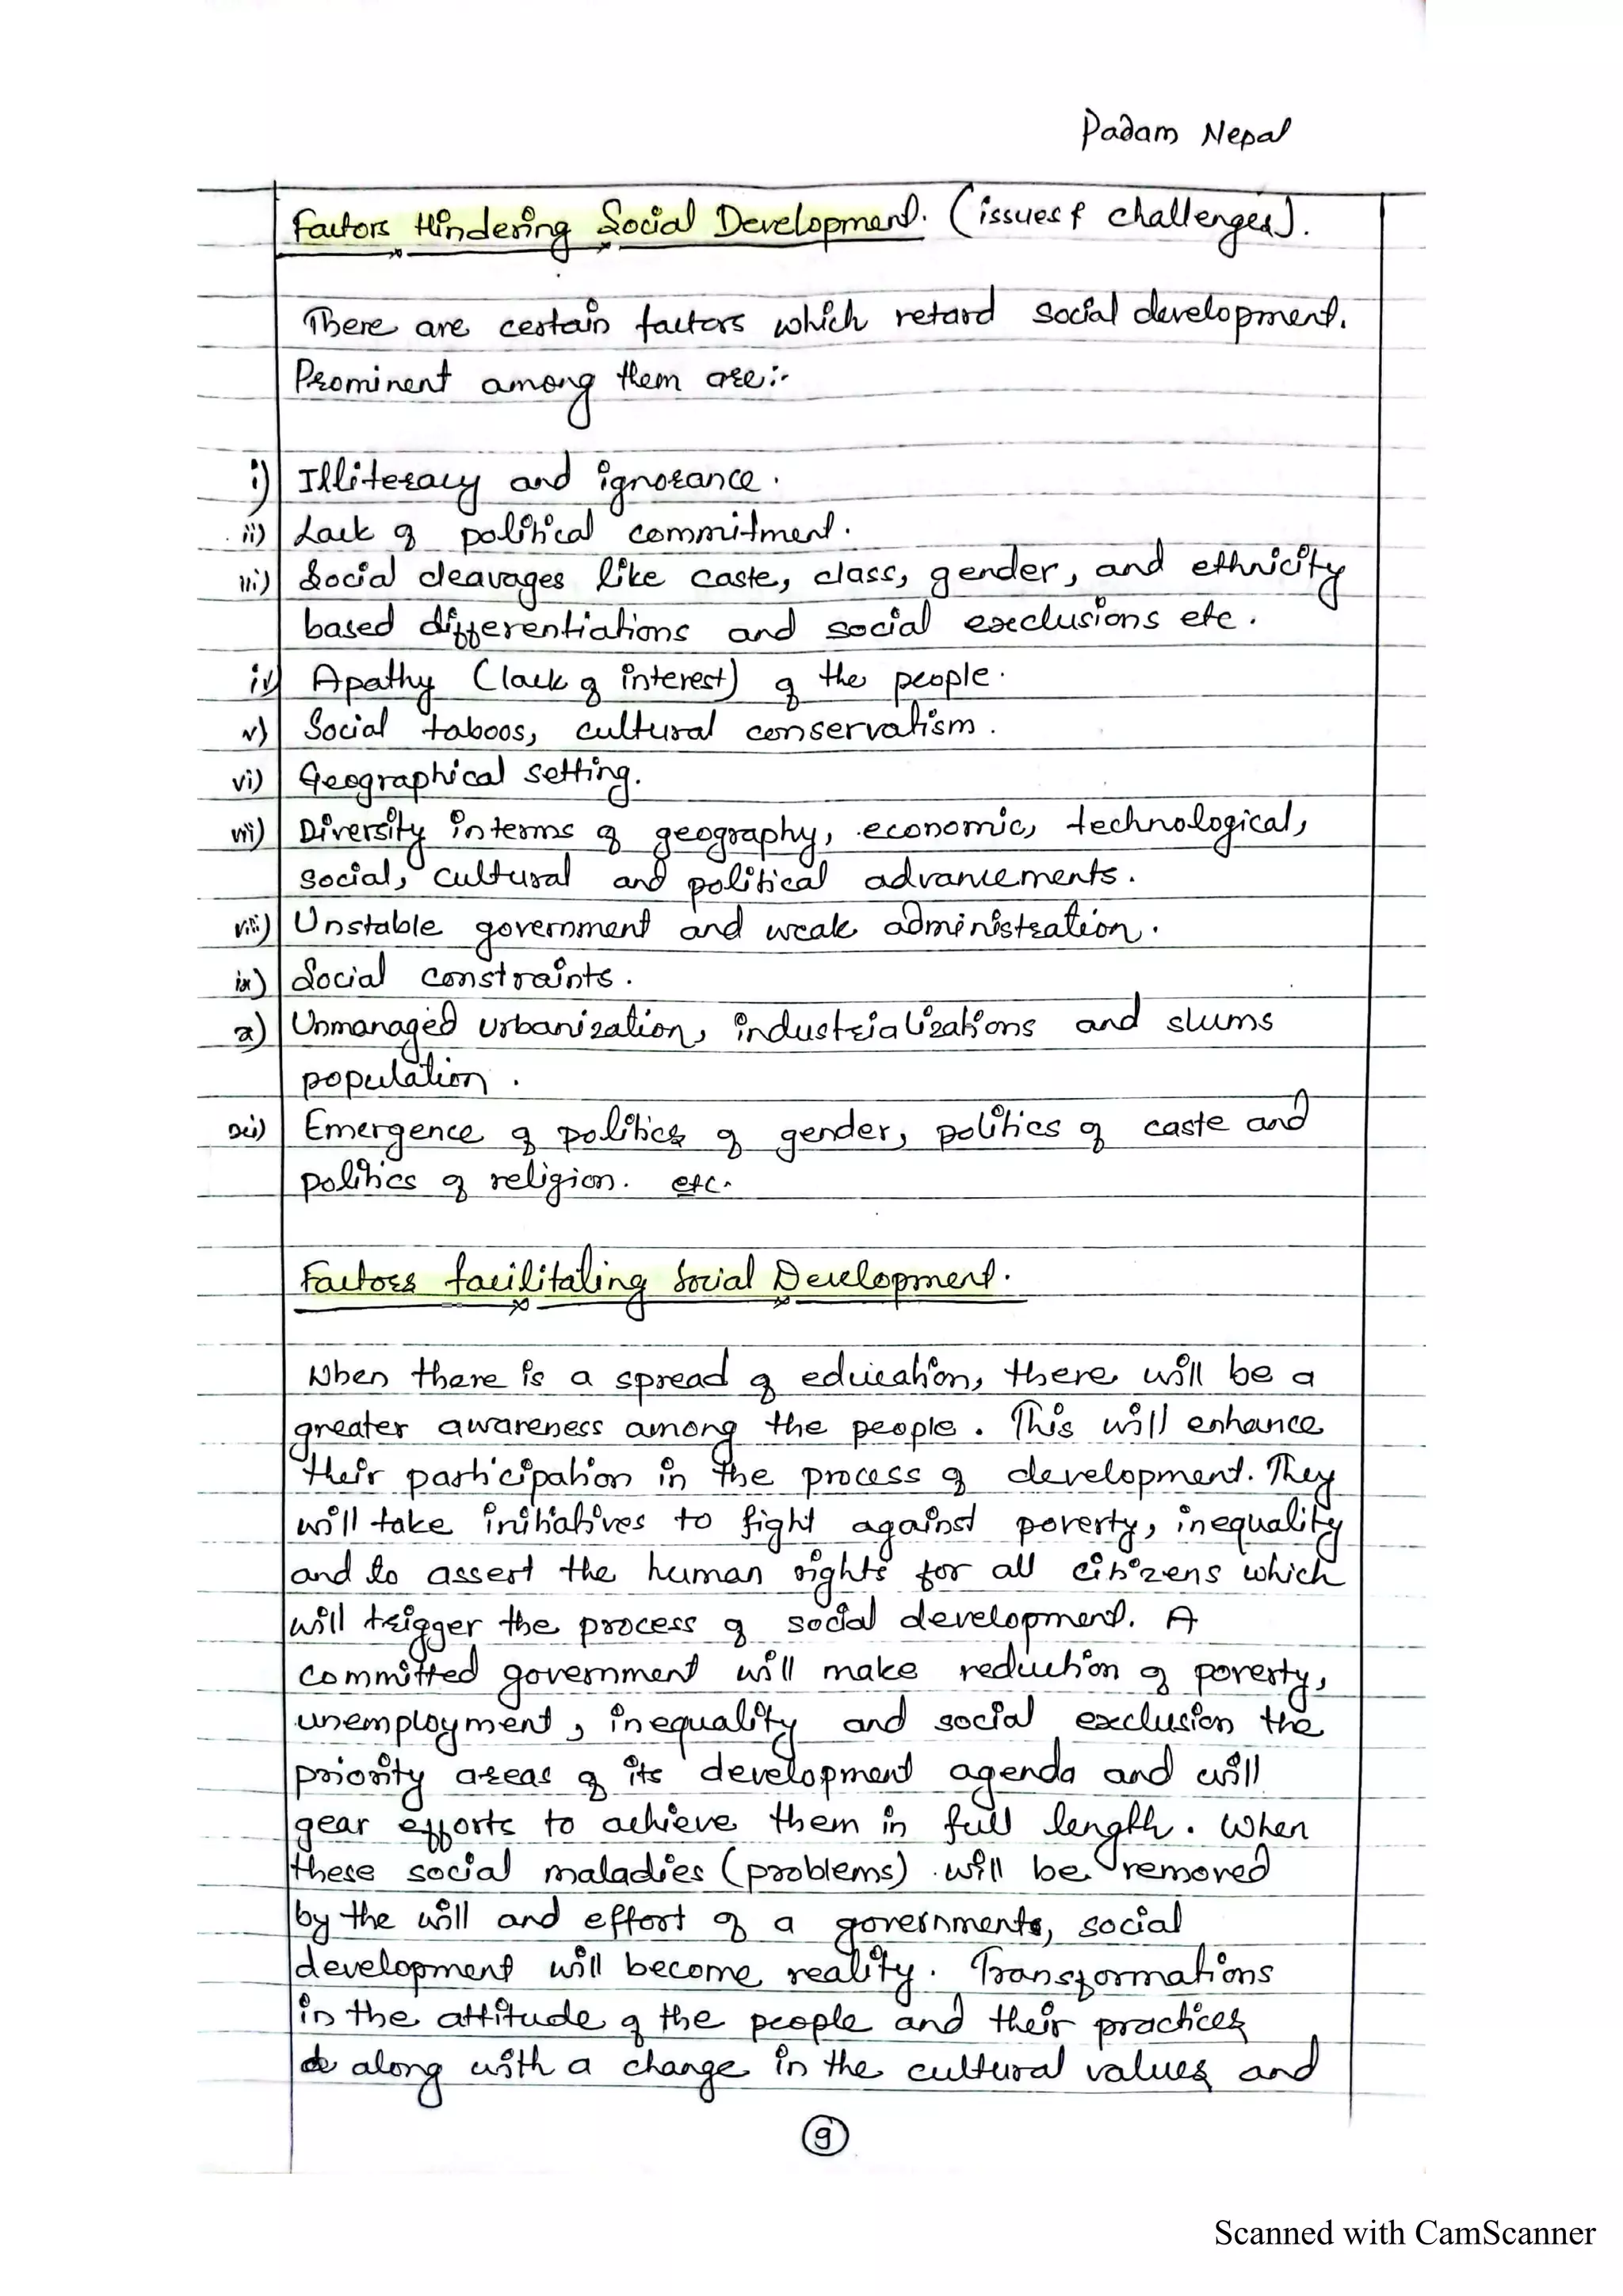 Padam Nepal
Factors Hindering Social Development. (issues & challenges).
There are certain factors which retard social development.
Prominent among them are:-
i) Illiteracy and ignorance.
ii) Lack of political commitment.
iii) Social cleavages like caste, class, gender, and ethnicity
based differentiations and social exclusions etc.
iv) Apathy (lack of interest) of the people.
v) Social taboos, cultural conservatism.
vi) Geographical setting.
vii) Diversity interms of geography, economic, technological,
social, cultural and political advancements.
viii) Unstable government and weak administration.
ix) Social constraints.
x) Unmanaged urbanization, industrializations and slums
population.
xi) Emergence of politics of gender, politics of caste and
politics of religion. etc.
Factors facilitating Social Development.
When there is a spread of education, there will be a
greater awareness among the people. This will enhance
their participation in the process of development. They
will take initiatives to fight against poverty, inequality
and to assert the human rights for all citizens which
will trigger the process of social development. A
committed government will make reduction of poverty,
unemployment, inequality and social exclusion the
priority areas of its development agenda and will
gear efforts to achieve them in full length. When
these social maladies (problems) will be removed
by the will and effort of a governments, social
development will become reality. Transformations
in the attitude of the people and their practices
along with a change in the cultural values and
9
Scanned with CamScanner